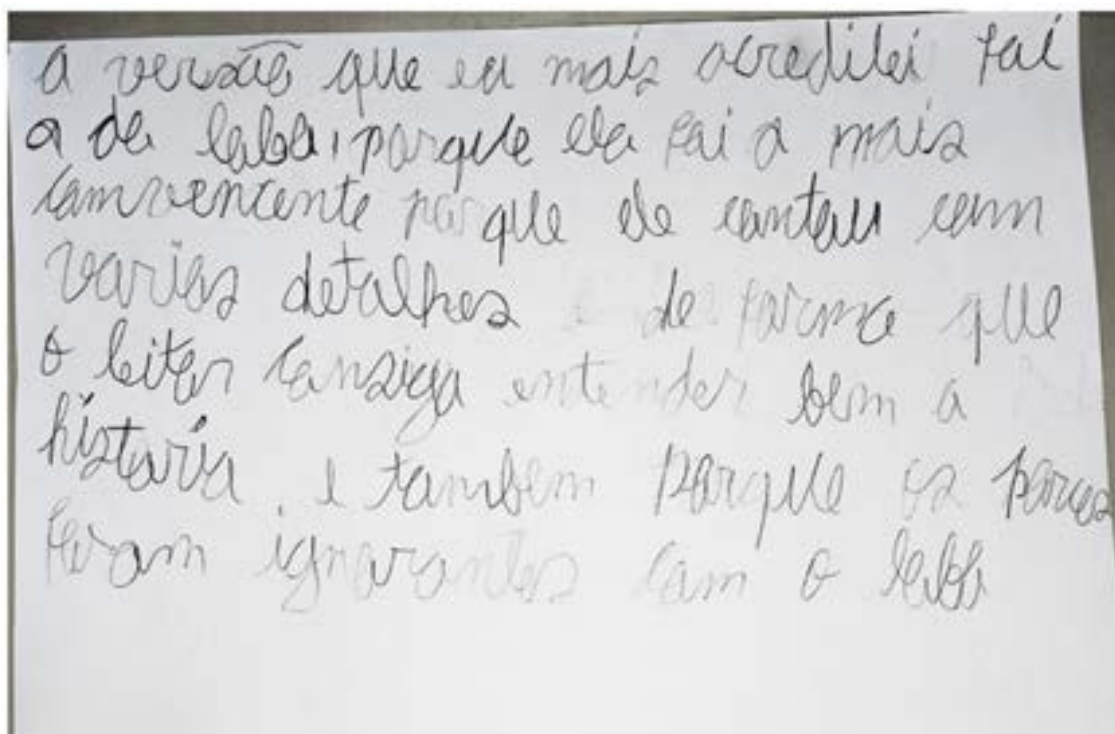 A versão que eu mais acreditei foi
a do lobo, porque ela foi a mais
comvencente porque ele contou com
varios detalhes e de forma que
o leitor consiga entender bem a
história e tambem porque os porcos
foram ignorantes com o lobo